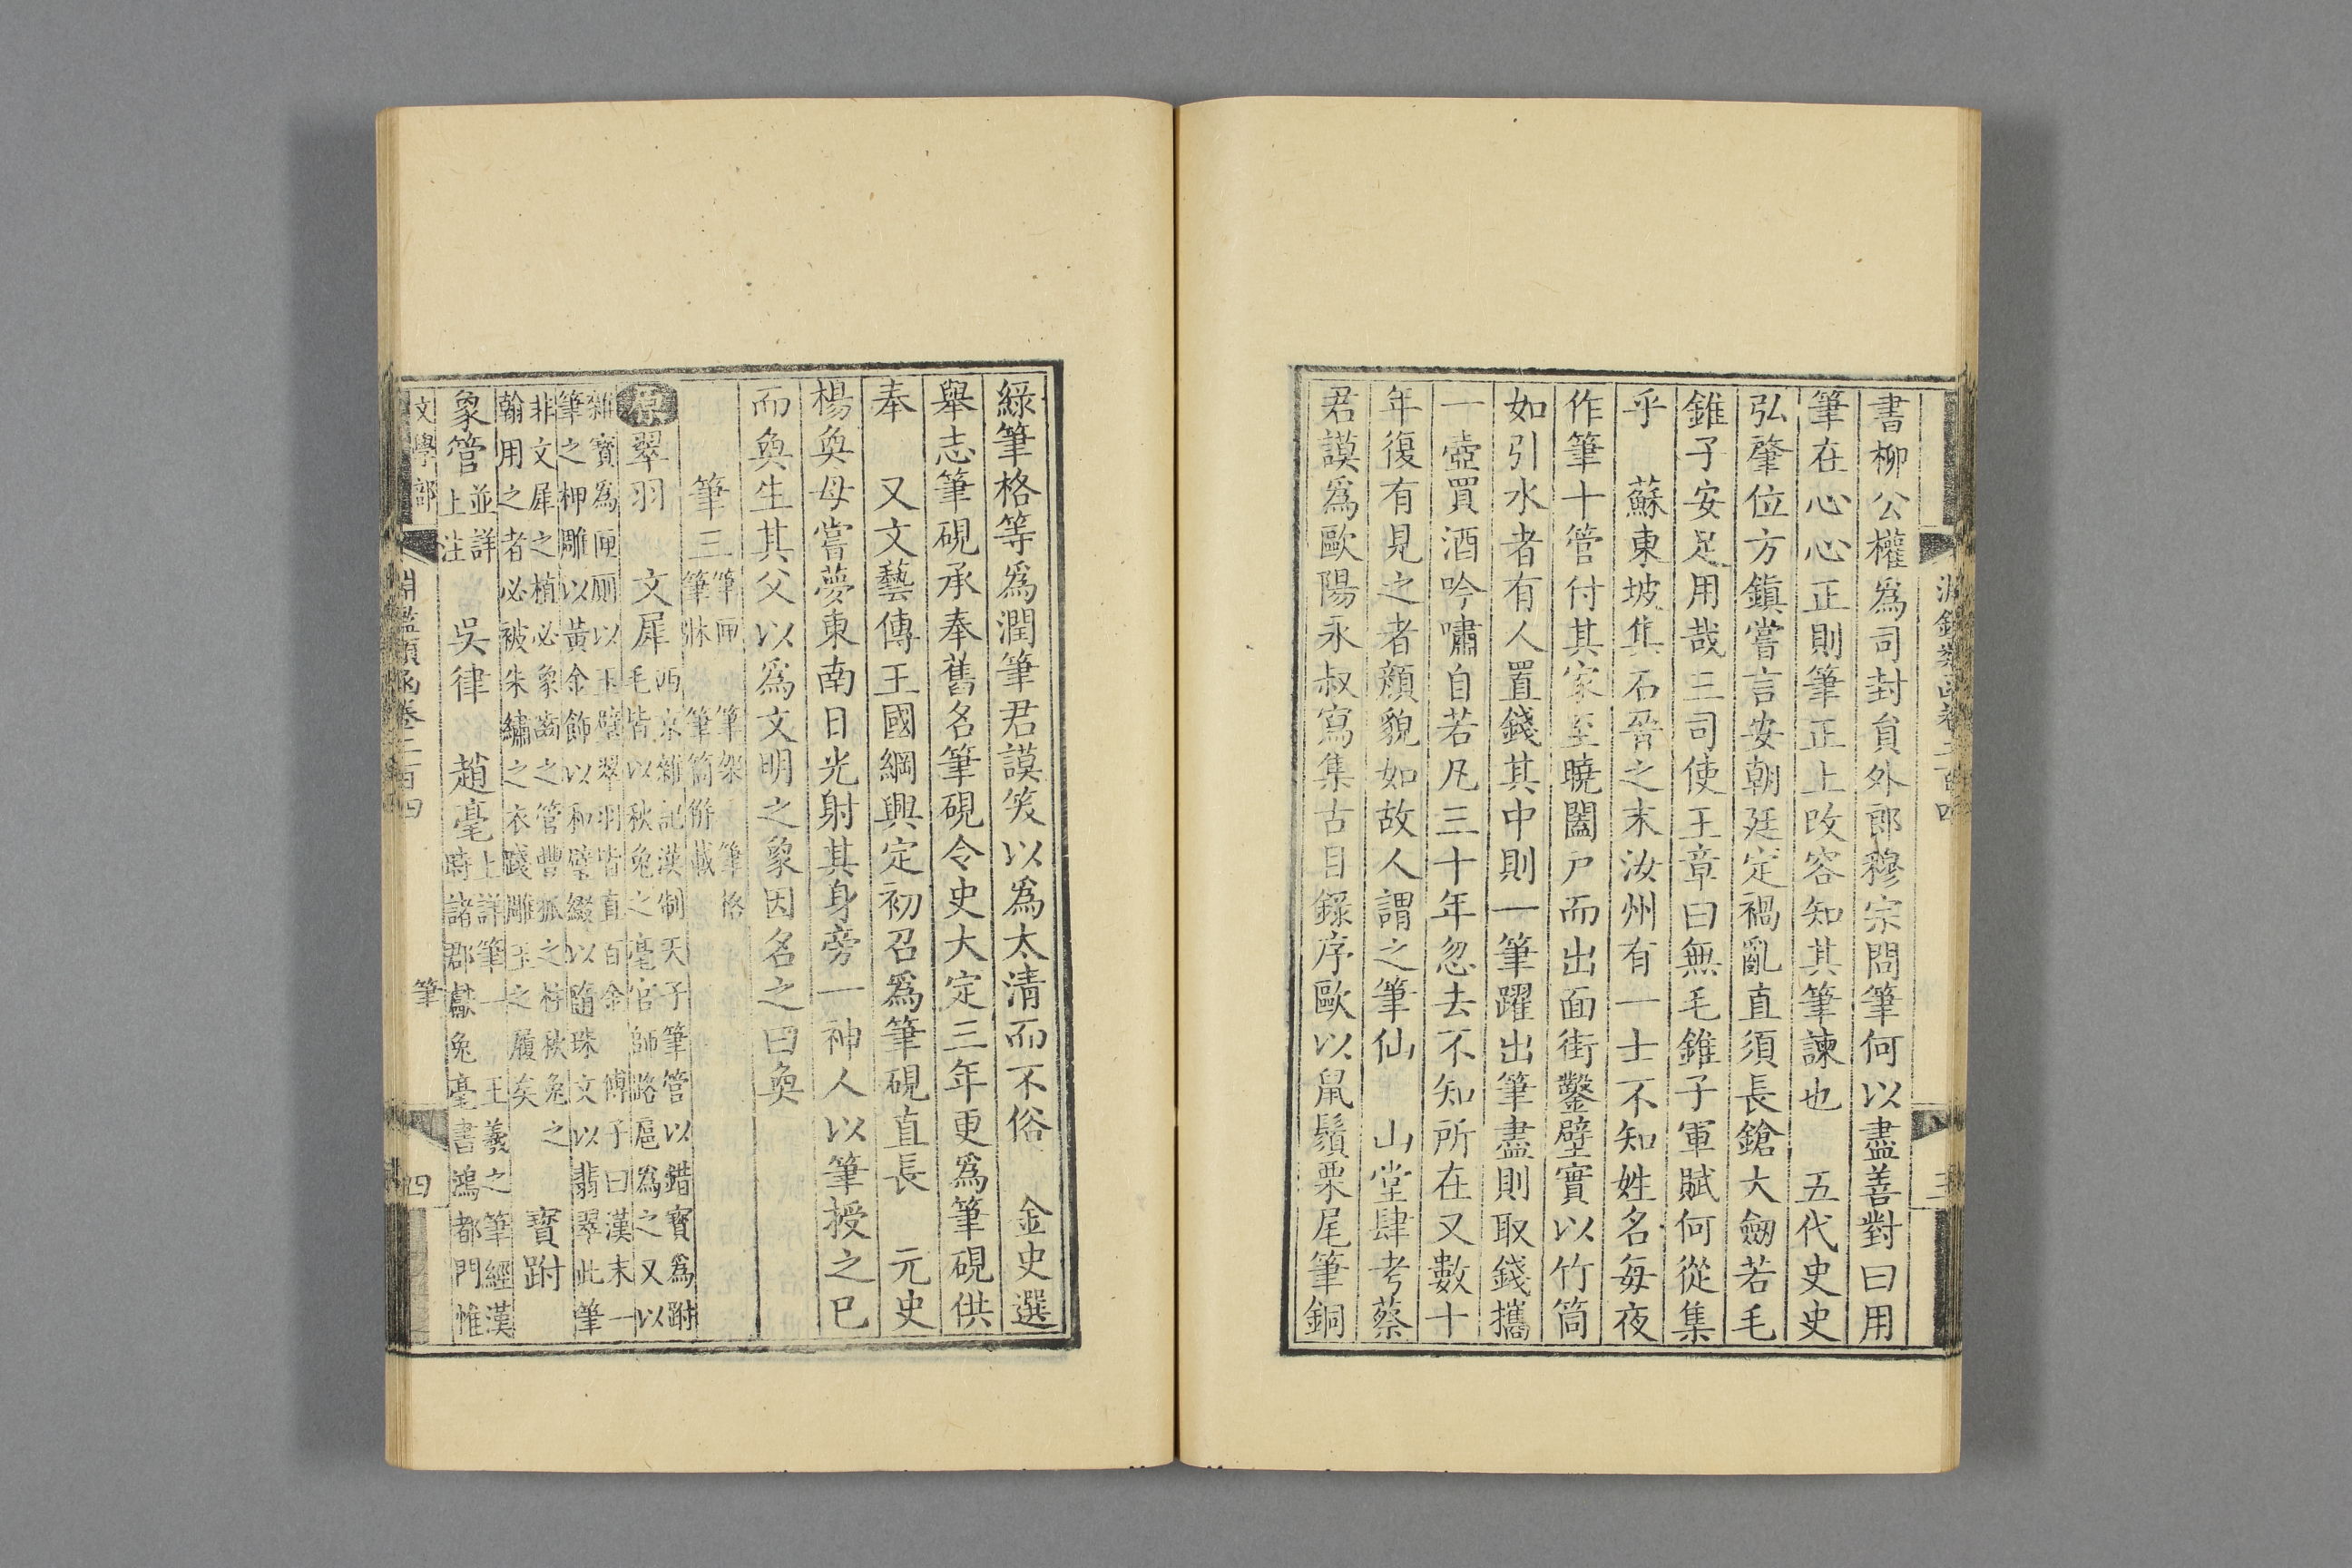 淵鑑類函卷二百四
三
書柳公權爲司封員外郎穆宗問筆何以盡善對曰用
筆在心心正則筆正上改容知其筆諫也　五代史史
弘肇位方鎮嘗言安朝廷定禍亂直須長鎗大劒若毛
錐子安足用哉三司使王章曰無毛錐子軍賦何從集
乎　蘇東坡集石晉之末汝州有一士不知姓名每夜
作筆十管付其家至曉闔戸而出面街鑿壁實以竹筒
如引水者有人置錢其中則一筆躍出筆盡則取錢攜
一壺買酒吟嘯自若凡三十年忽去不知所在又數十
年復有見之者顏貌如故人謂之筆仙　山堂肆考蔡
君謨爲歐陽永叔寫集古目錄序歐以鼠鬚栗尾筆銅
綠筆格等爲潤筆君謨笑以爲太清而不俗　金史選
舉志筆硯承奉舊名筆硯令史大定三年更爲筆硯供
奉　又文藝傳王國綱興定初召爲筆硯直長　元史
楊奐母嘗夢東南日光射其身旁一神人以筆授之已
而奐生其父以爲文明之象因名之曰奐
筆三筆匣　筆架　筆格筆牀　筆筒併載
原翠羽　文犀西京雜記漢制天子筆管以錯寶爲跗毛皆以秋兔之毫官師路扈爲之又以
雜寶爲匣厠以玉璧翠羽皆直百金　傅子曰漢末一筆之柙雕以黃金飾以和璧綴以隨珠文以翡翠此筆
非文犀之植必象齒之管豐狐之柱秋兔之翰用之者必被朱繡之衣踐雕玉之履矣　寶跗
象管並詳上注　吳律　趙毫上詳筆一　王羲之筆經漢時諸郡獻兔毫書鴻都門惟
文學部
淵鑑類函卷二百四
筆
四